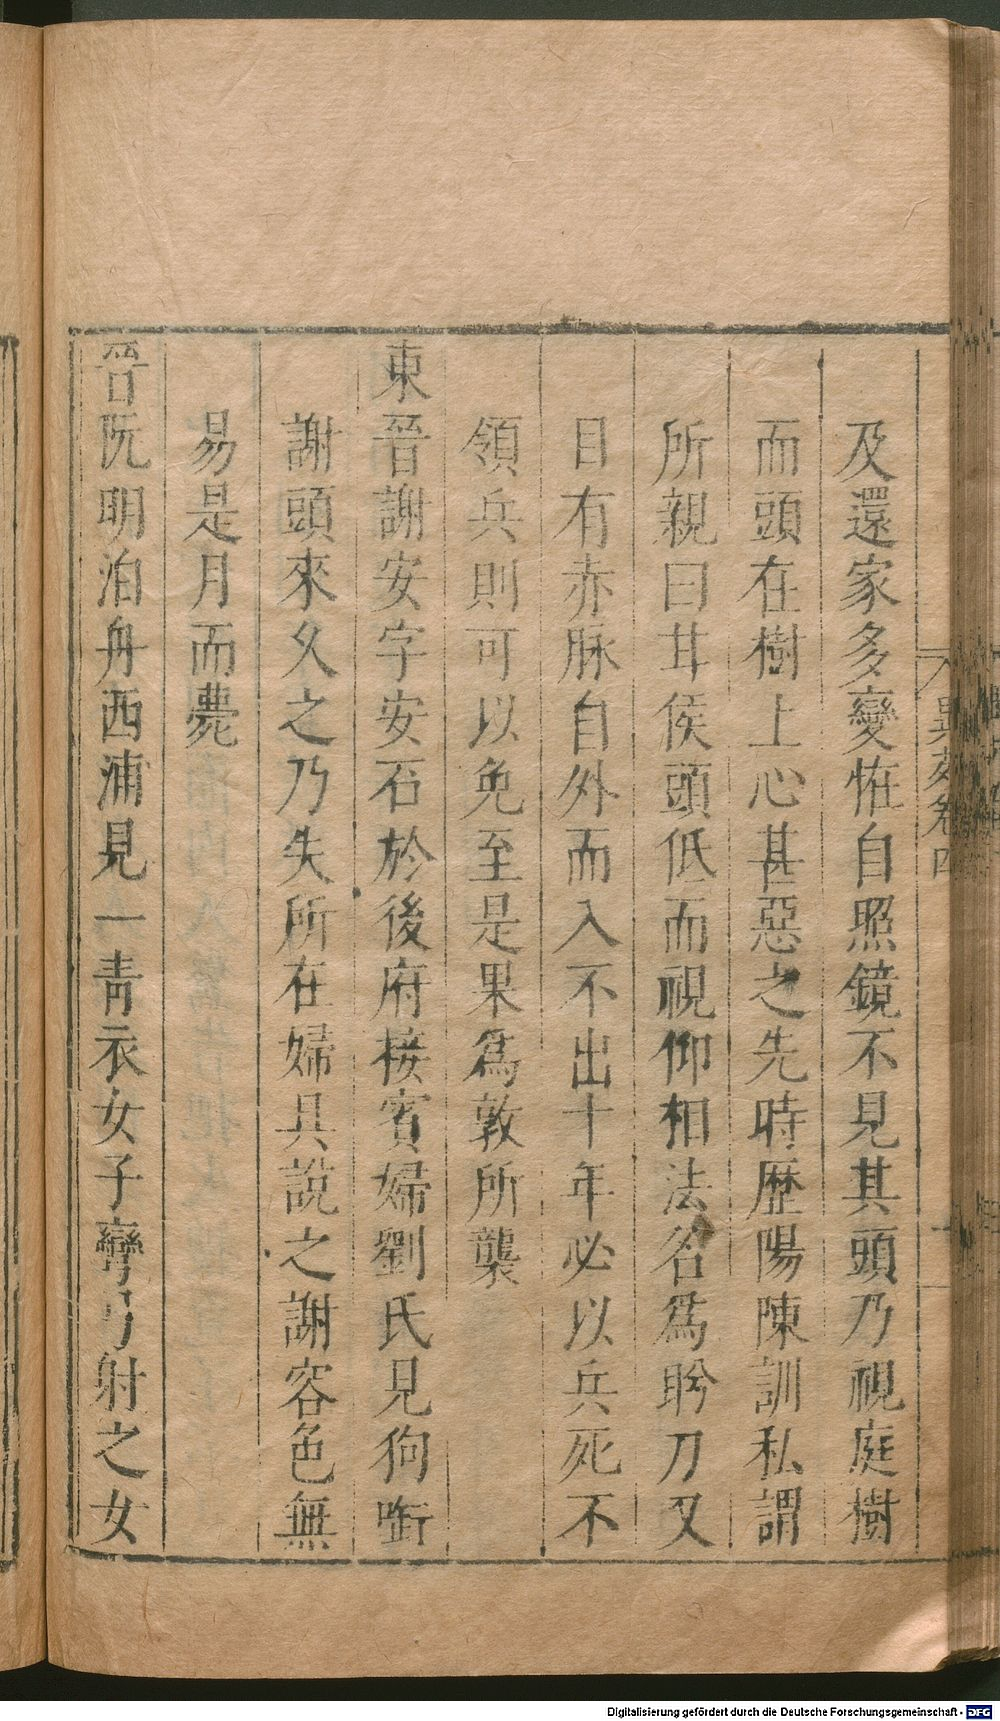 及還家多變恠自照鏡不見其頭乃視庭樹
而頭在樹上心甚惡之先時歷陽陳訓私謂
所親曰甘侯頭低而視仰相法名爲盻刀又
目有赤脉自外而入不出十年必以兵死不
領兵則可以免至是果爲敦所襲
東晉謝安字安石於後府接賓婦劉氏見狗銜
謝頭來久之乃失所在婦具說之謝容色無
易是月而薨
晉阮明泊舟西浦見一青衣女子彎弓射之女
異苑卷四
Digitalisierung gefördert durch die Deutsche Forschungsgemeinschaft - DFG